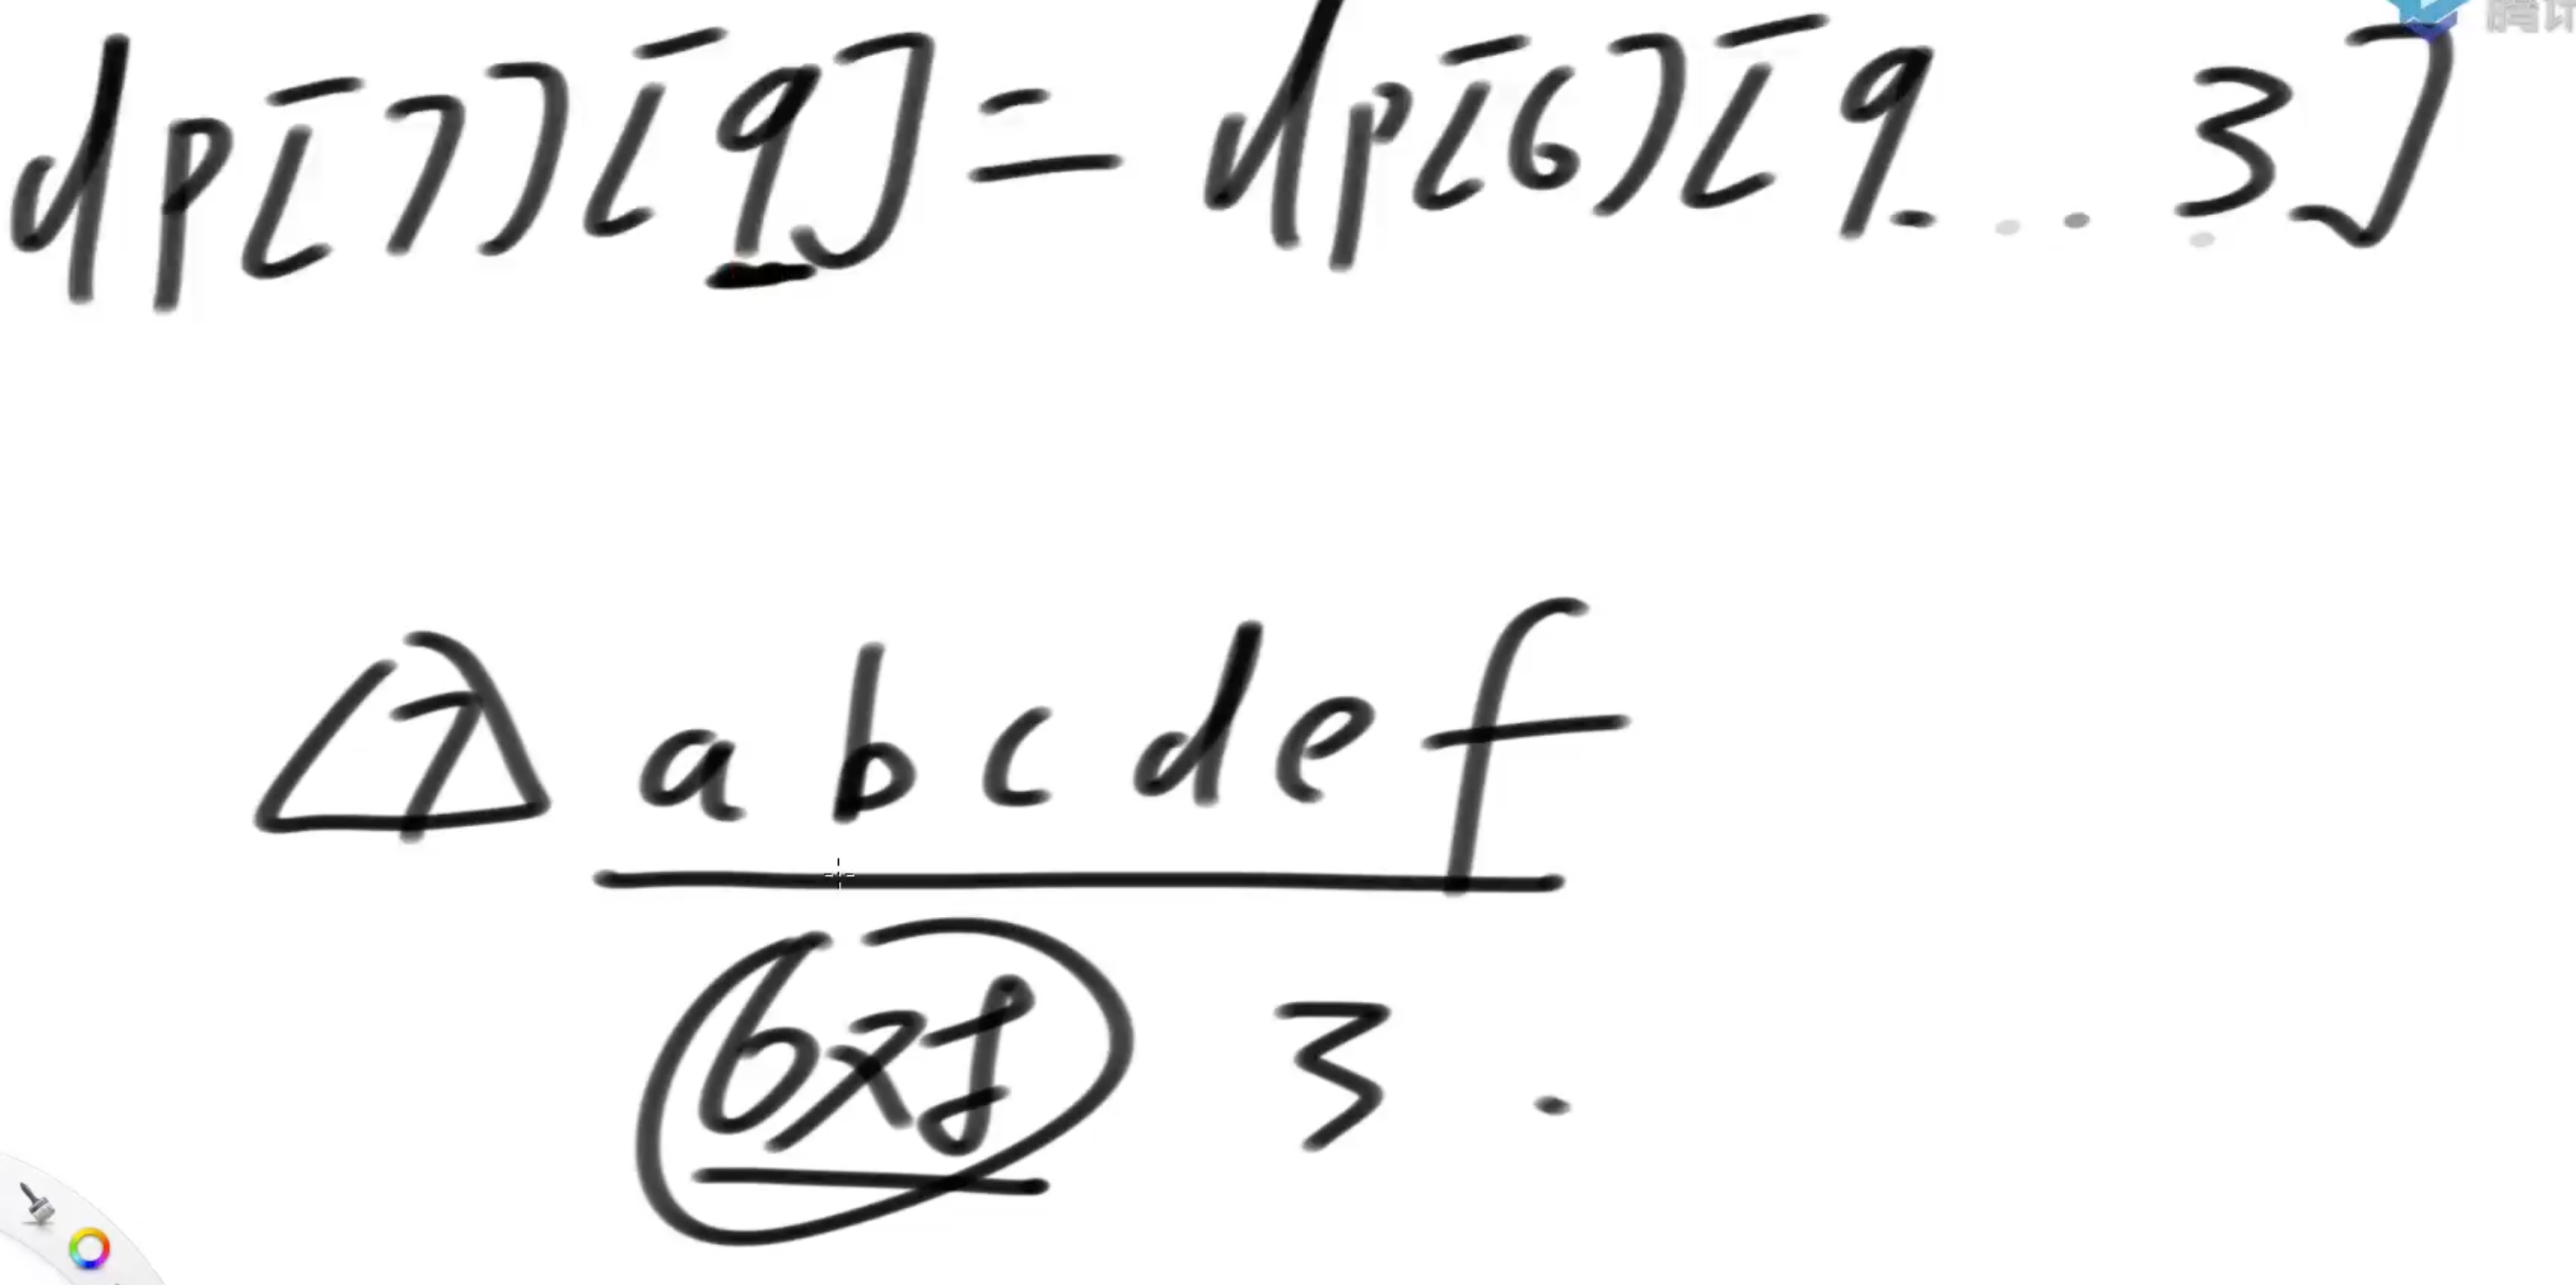 dp[7][9] = dp[6][9...3]
7 a b c d e f
6x8 3.